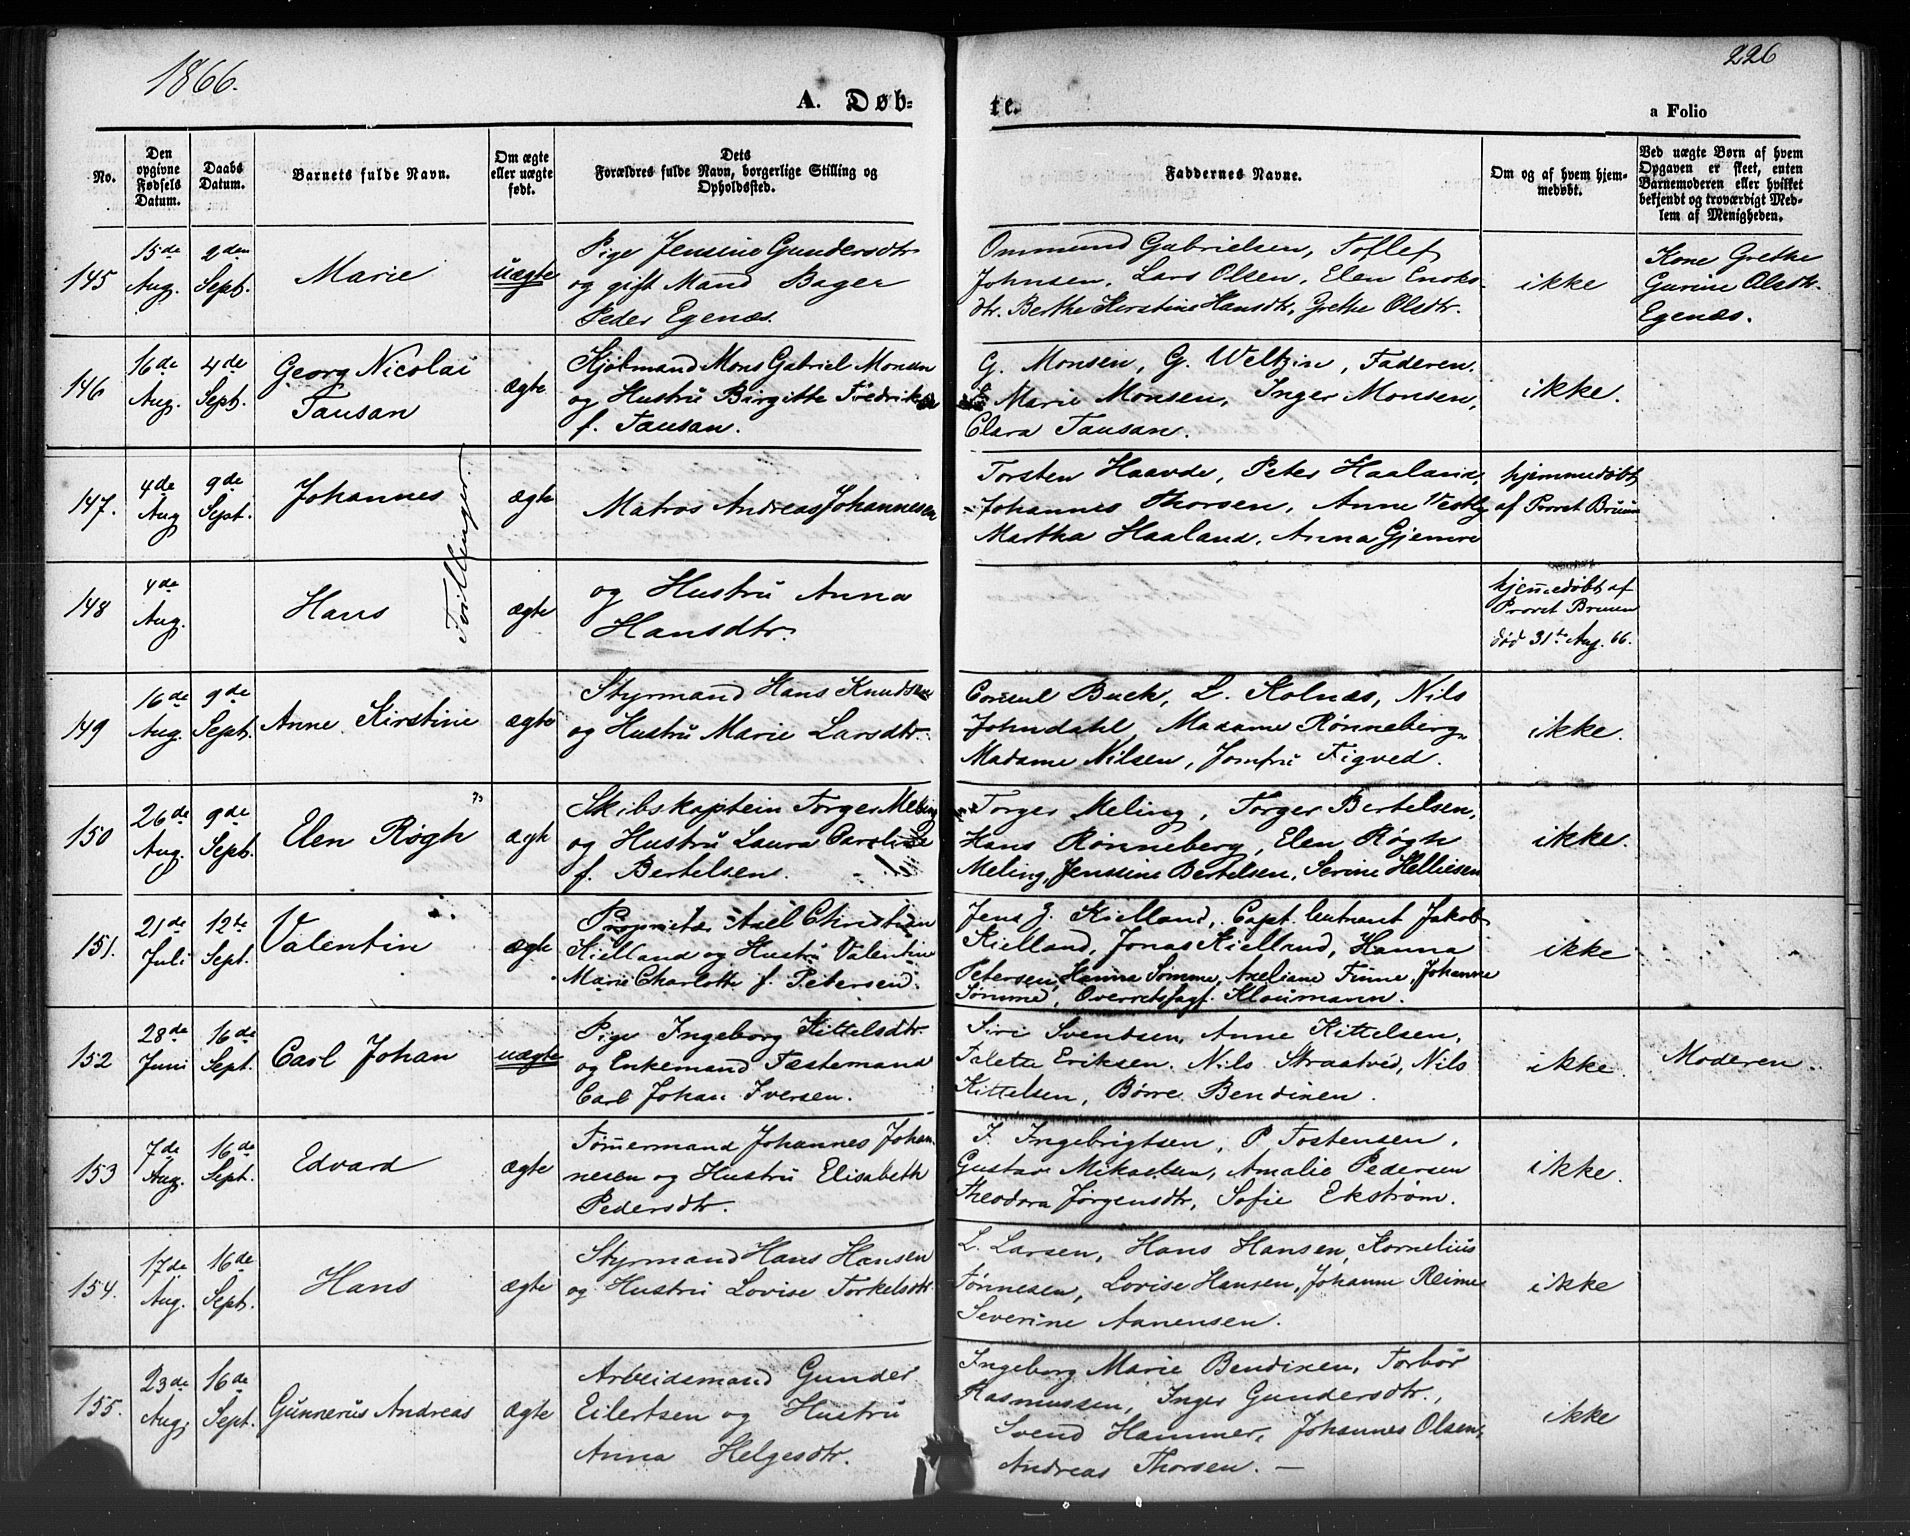 1866.
226
A. Døb-
te.
a Folio
No.
Den opgivne Fødsels Datum.
Daabs Datum.
Barnets fulde Navn.
Om ægte eller uægte født.
Dets Forældres fulde Navn, borgerlige Stilling og Opholdssted.
Faddernes Navne.
Om og af hvem hjemmedøbt.
Ved uægte Børn af hvem Opgaven er skeet, enten Barnemoderen eller hvilket bekjendt og troværdigt Medlem af Menigheden.
145
15de Aug.
2den Sept.
Marie
uægte
Pige Jensine Gundersdtr
og gift Mand Bager
Peder Egenæs.
Ommund Gabrielsen, Tollef
Johnsen, Lars Olsen, Elen Enoks-
dtr. Berthe Kirstine Hansdtr, Grethe Olsdtr.
ikke
Kone Grethe
Gurine Olsdtr.
Egenæs.
146
16de Aug.
4de Sept.
Georg Nicolai
Tausan
ægte
Kjøbmand Mons Gabriel Monsen
og Hustru Birgitte Fredrikke
f. Tausan.
G. Monsen, G. Weltzin, Faderen,
Marie Monsen, Inger Monsen,
Clara Tausan.
ikke.
147.
4de Aug
9de Sept.
Johannes
Tvillinger
ægte
Matros Andreas Johannesen
Torsten Haavde, Peter Haaland,
Johannes Thorsen, Anne Vestly
Martha Haaland, Anna Gjemre
hjemmedøbt
af Provst Bruun
148
4de Aug.
Hans
ægte
og Hustru Anna
Hansdtr.
hjemmedøbt af
Provst Bruun
død 31te Aug. 66.
149
16de Aug.
9de Sept.
Anne Kirstine
ægte
Styrmand Hans Knudsen
og Hustru Marie Larsdtr.
Consul Buch, L. Kolnæs, Nils
Johndahl, Madame Rønneberg,
Madame Nilsen, Jomfru Tigved.
ikke.
150
26de Aug.
9de Sept.
Elen Røgh
ægte
Skibskaptein Torger Meling
og Hustru Laura Caroline
f. Bertelsen.
Torger Meling, Torger Bertelsen,
Hans Rønneberg, Elen Røgh
Meling, Jenssine Bertelsen, Serine Helliesen
ikke.
151.
21de Juli
12te Sept.
Valentin
ægte
Proprietær Axel Christian
Kielland og Hustru Valentine
Marie Charlotte f. Petersen.
Jens Z. Kielland, Capt. leutnent Jakob
Kielland, Jonas Kielland, Hanna
Petersen, Hanna Sømme, Axeliane Finne, Johanne
Sømme, Overretssagf. Kloumann.
ikke
152
28de Juni
16de Sept.
Carl Johan
uægte
Pige Ingeborg Kittelsdtr.
og Enkemand Fæstemand
Carl Johan Iversen.
Siri Svendsen, Anne Kittelsen,
Talette Eriksen. Nils Straatved, Nils
Kittelsen, Børre Bendixen.
ikke.
Moderen.
153
7de Aug.
16de Sept.
Edvard
ægte
Tømmermand Johannes Johan-
nesen og Hustru Elisabeth
Pedersdtr.
I. Ingebrigtsen, P. Tostensen,
Gustav Mikaelsen, Amalie Pedersen
Theodora Jørgensdtr, Sofie Ekstrøm.
ikke.
154.
17de Aug.
16de Sept.
Hans
ægte
Styrmand Hans Hansen
og Hustru Lovise Torkelsdtr
L. Larsen, Hans Hansen, Kornelius
Tønnesen, Lovise Hansen, Johanne Reime
Severine Aanensen.
ikke
155.
23de Aug.
16de Sept.
Gunnerus Andreas
ægte
Arbeidsmand Gunder
Eilertsen og Hustru
Anna Helgesdtr.
Ingeborg Marie Bendixen, Torbør
Rasmussen, Inger Gundersdtr.,
Svend Hammer, Johannes Olsen,
Andreas Thorsen. —
ikke